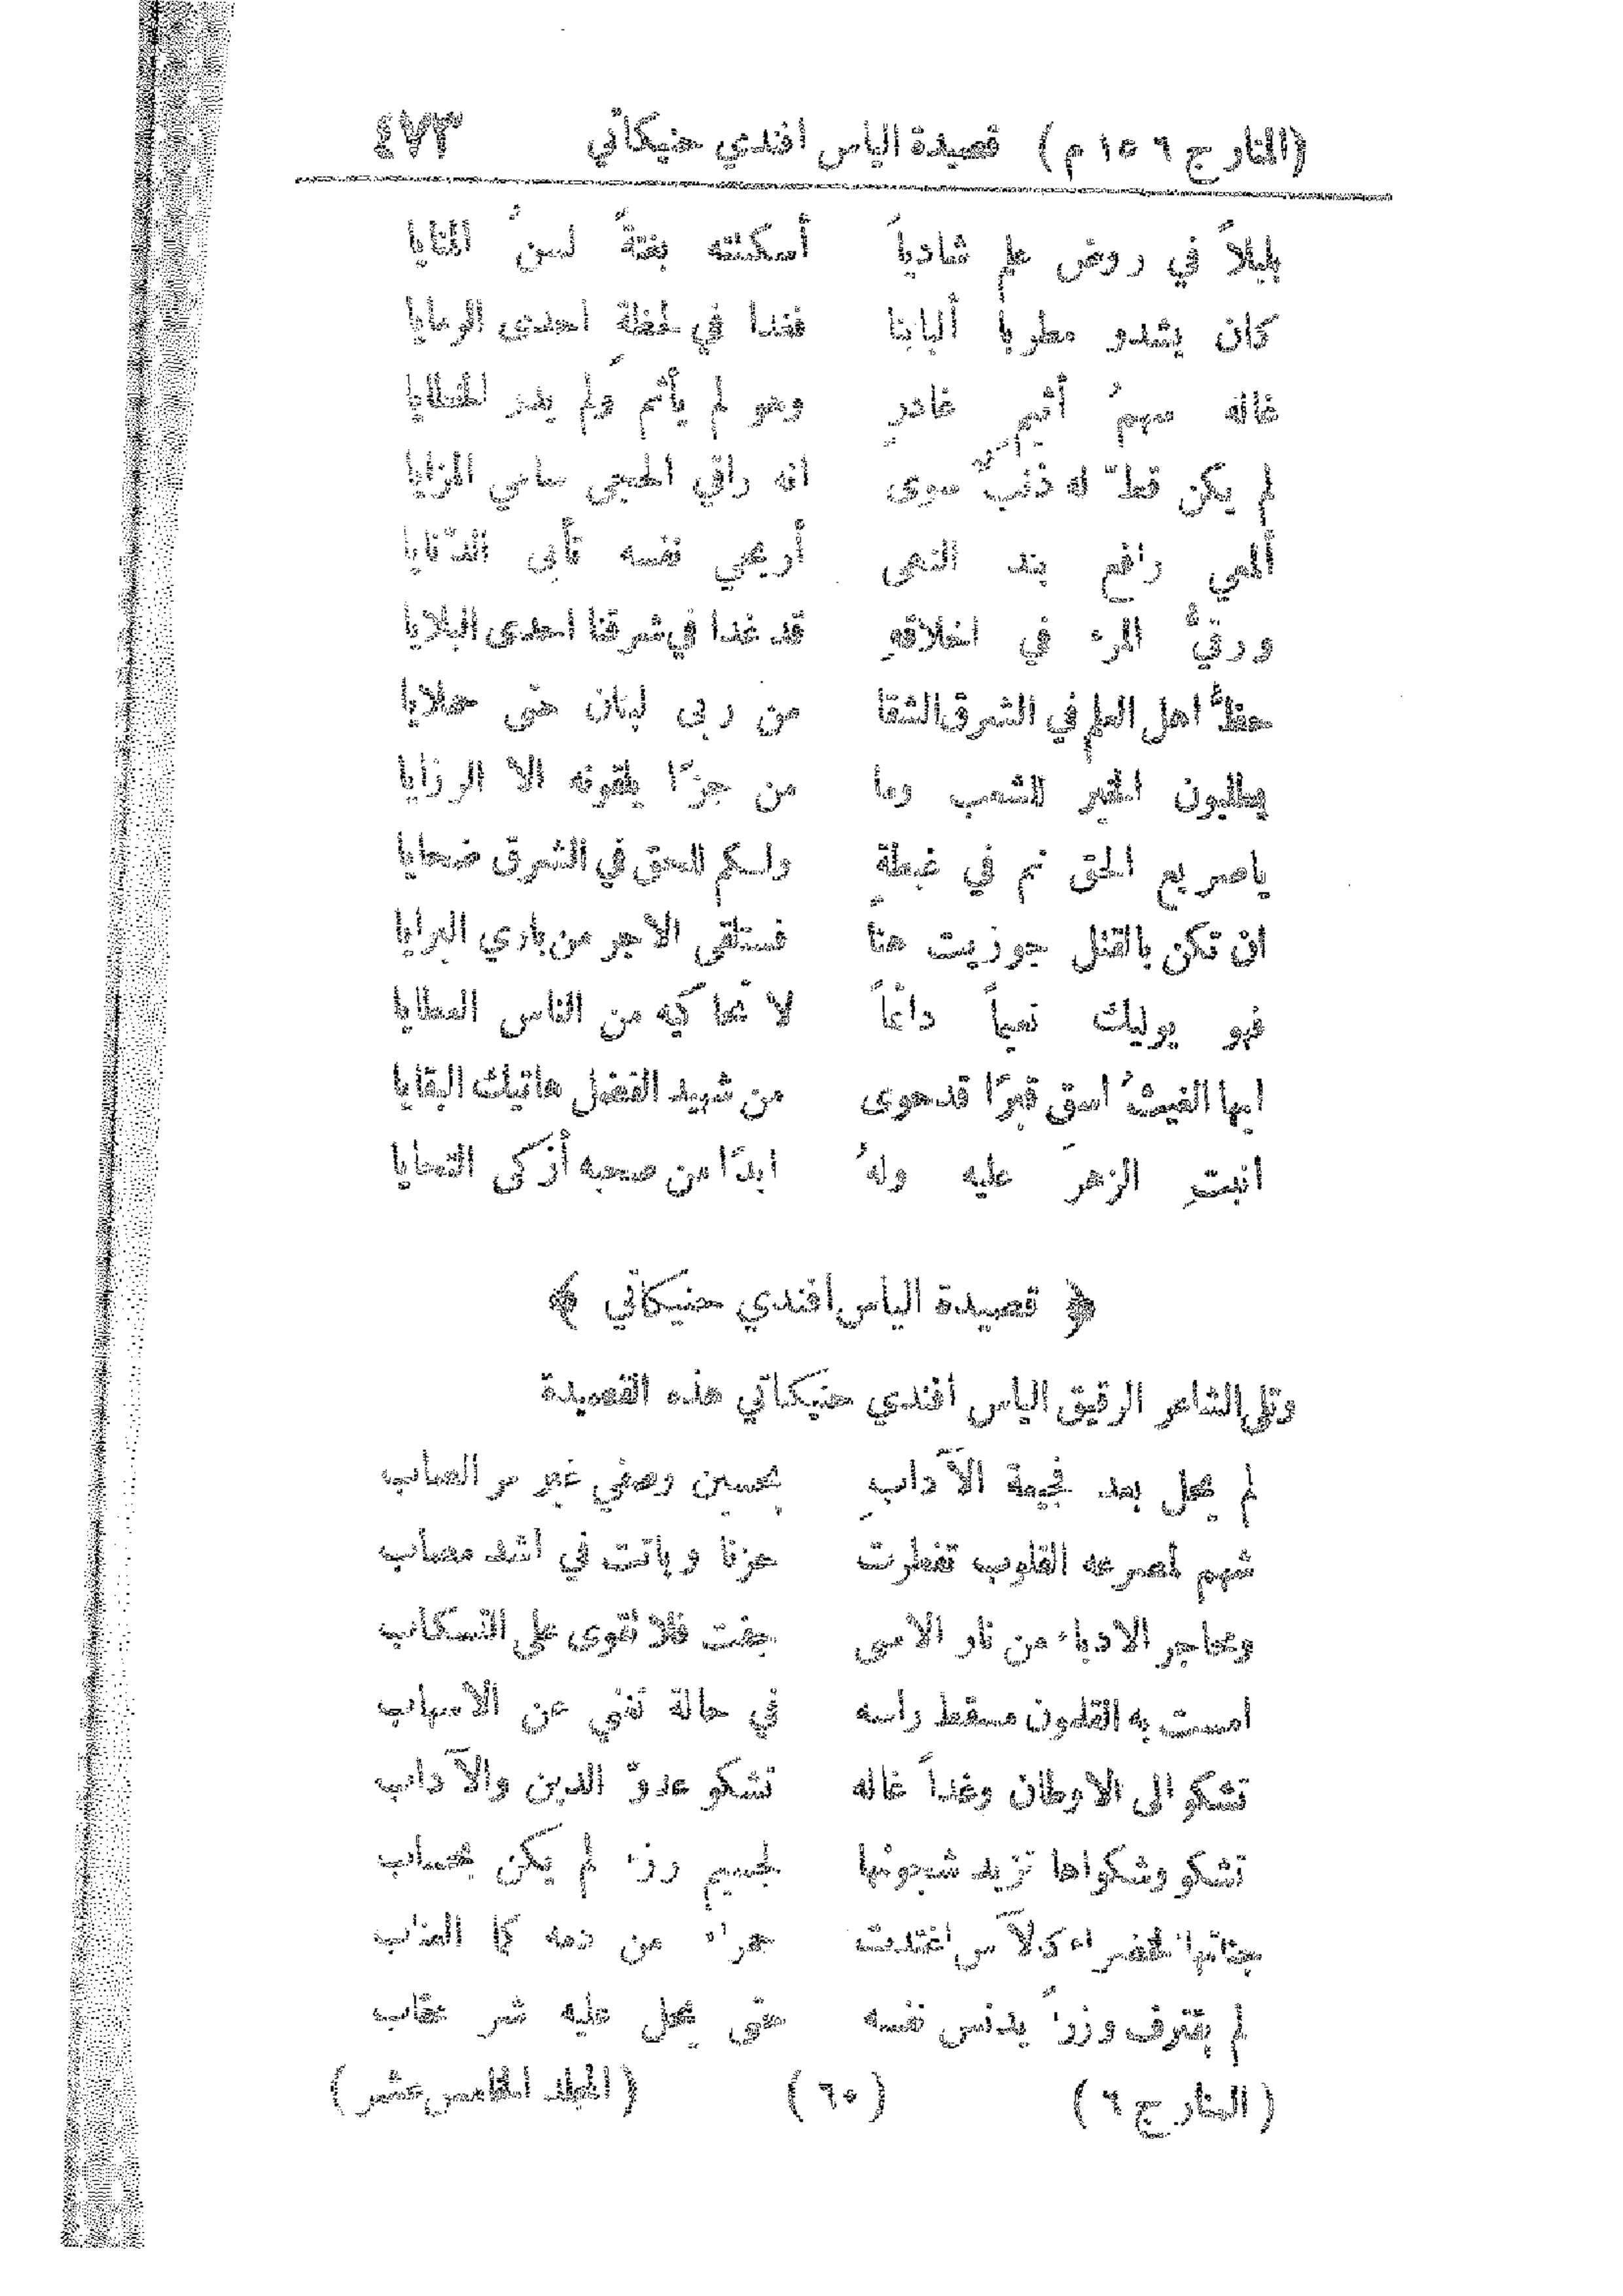 (المنار ج ٦ م ١٥) قصيدة الياس افندي حنيكاتي ٤٧٣
بلبلاً في روض علم شادياً أسكتته بغتةً لسنُ المنايا
كان يشدو مطرباً ألبابنا فغدا في لحظة احدى الرمايا
غاله سهمُ أثيمٍ غادرٍ وهو لم يأثم ولم يدر الخطايا
لم يكن قطّ له ذنبٌ سوى انه راقي الحجى سامي المزايا
ألمعي رافع بند النهى أريحي نفسه تأبى الدّنايا
ورقيُّ المرء في اخلاقهِ قد غدا في شرقنا احدى البلايا
حظُّ اهل العلم في الشرق الشقا من ربى لبنان حتى
يطلبون الخير للشعب وما من جزًا يلقونه الا الرزايا
ياصريع الحق نم في غبطةٍ ولكم للحق في الشرق ضحايا
ان تكن بالقتل جوزيت هنا فستلقى الاجر من باري البرايا
فهو يوليك نعيماً دائماً لا تحاكيه من الناس العطايا
ايها الغيثُ اسق قبرًا قد حوى من شهيد الفضل هاتيك البقايا
انبتِ الزهرَ عليه ولهُ ابدًا من صحبه أزكى التحايا
﴿ قصيدة الياس افندي حنيكاتي ﴾
وتلى الشاعر الرقيق الياس افندي حنيكاتي هذه القصيدة
لم يحل بعد فجيعة الآدابِ بحسين وصفي غير مر الصاب
شهم لمصرعه القلوب تفطرت حزنا وباتت في اشد مصاب
ومحاجر الادباء من نار الاسى جفت فلا تقوى على التسكاب
امست به القلمون مسقط راسه في حالة تغني عن الاسهاب
تشكو الى الاوطان وغداً غاله تشكو عدوّ الدين والآداب
تشكو وشكواها تزيد شجونها لجسيم رزء لم يكن بحساب
جناتها الخضراء كالآس اغتدت حمراء من دمه كما العناب
لم يقترف وزراً يدنس نفسه حتى يحل عليه شر عقاب
(المنار ج ٦) (٦٠) (المجلد الخامس عشر)